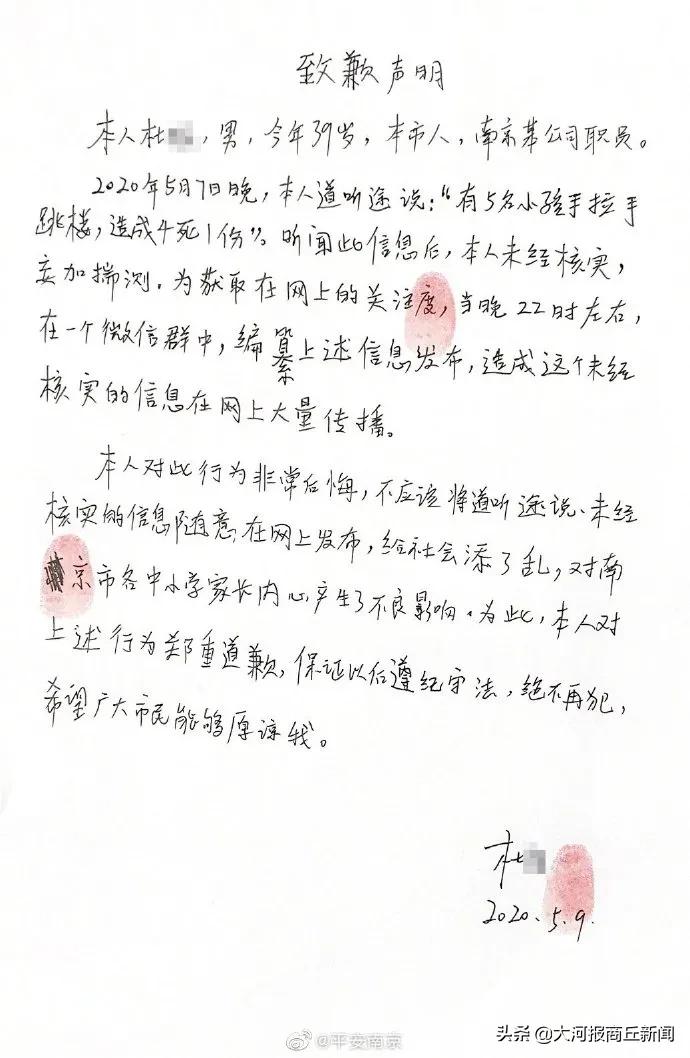 致歉声明
本人杜，男，今年39岁，本市人，南京某公司职员。
2020年5月7日晚，本人道听途说：“有5名小孩手拉手
跳楼，造成4死1伤”。听闻此信息后，本人未经核实，
妄加揣测。为获取在网上的关注度，当晚22时左右，
在一个微信群中，编纂上述信息发布，造成这个未经
核实的信息在网上大量传播。
本人对此行为非常后悔，不应该将道听途说、未经
核实的信息随意在网上发布，给社会添了乱，对南
京市各中小学家长内心产生了不良影响。为此，本人对
上述行为郑重道歉，保证以后遵纪守法，绝不再犯，
希望广大市民能够原谅我。
杜
2020.5.9.
@平安南京
头条 @大河报商丘新闻